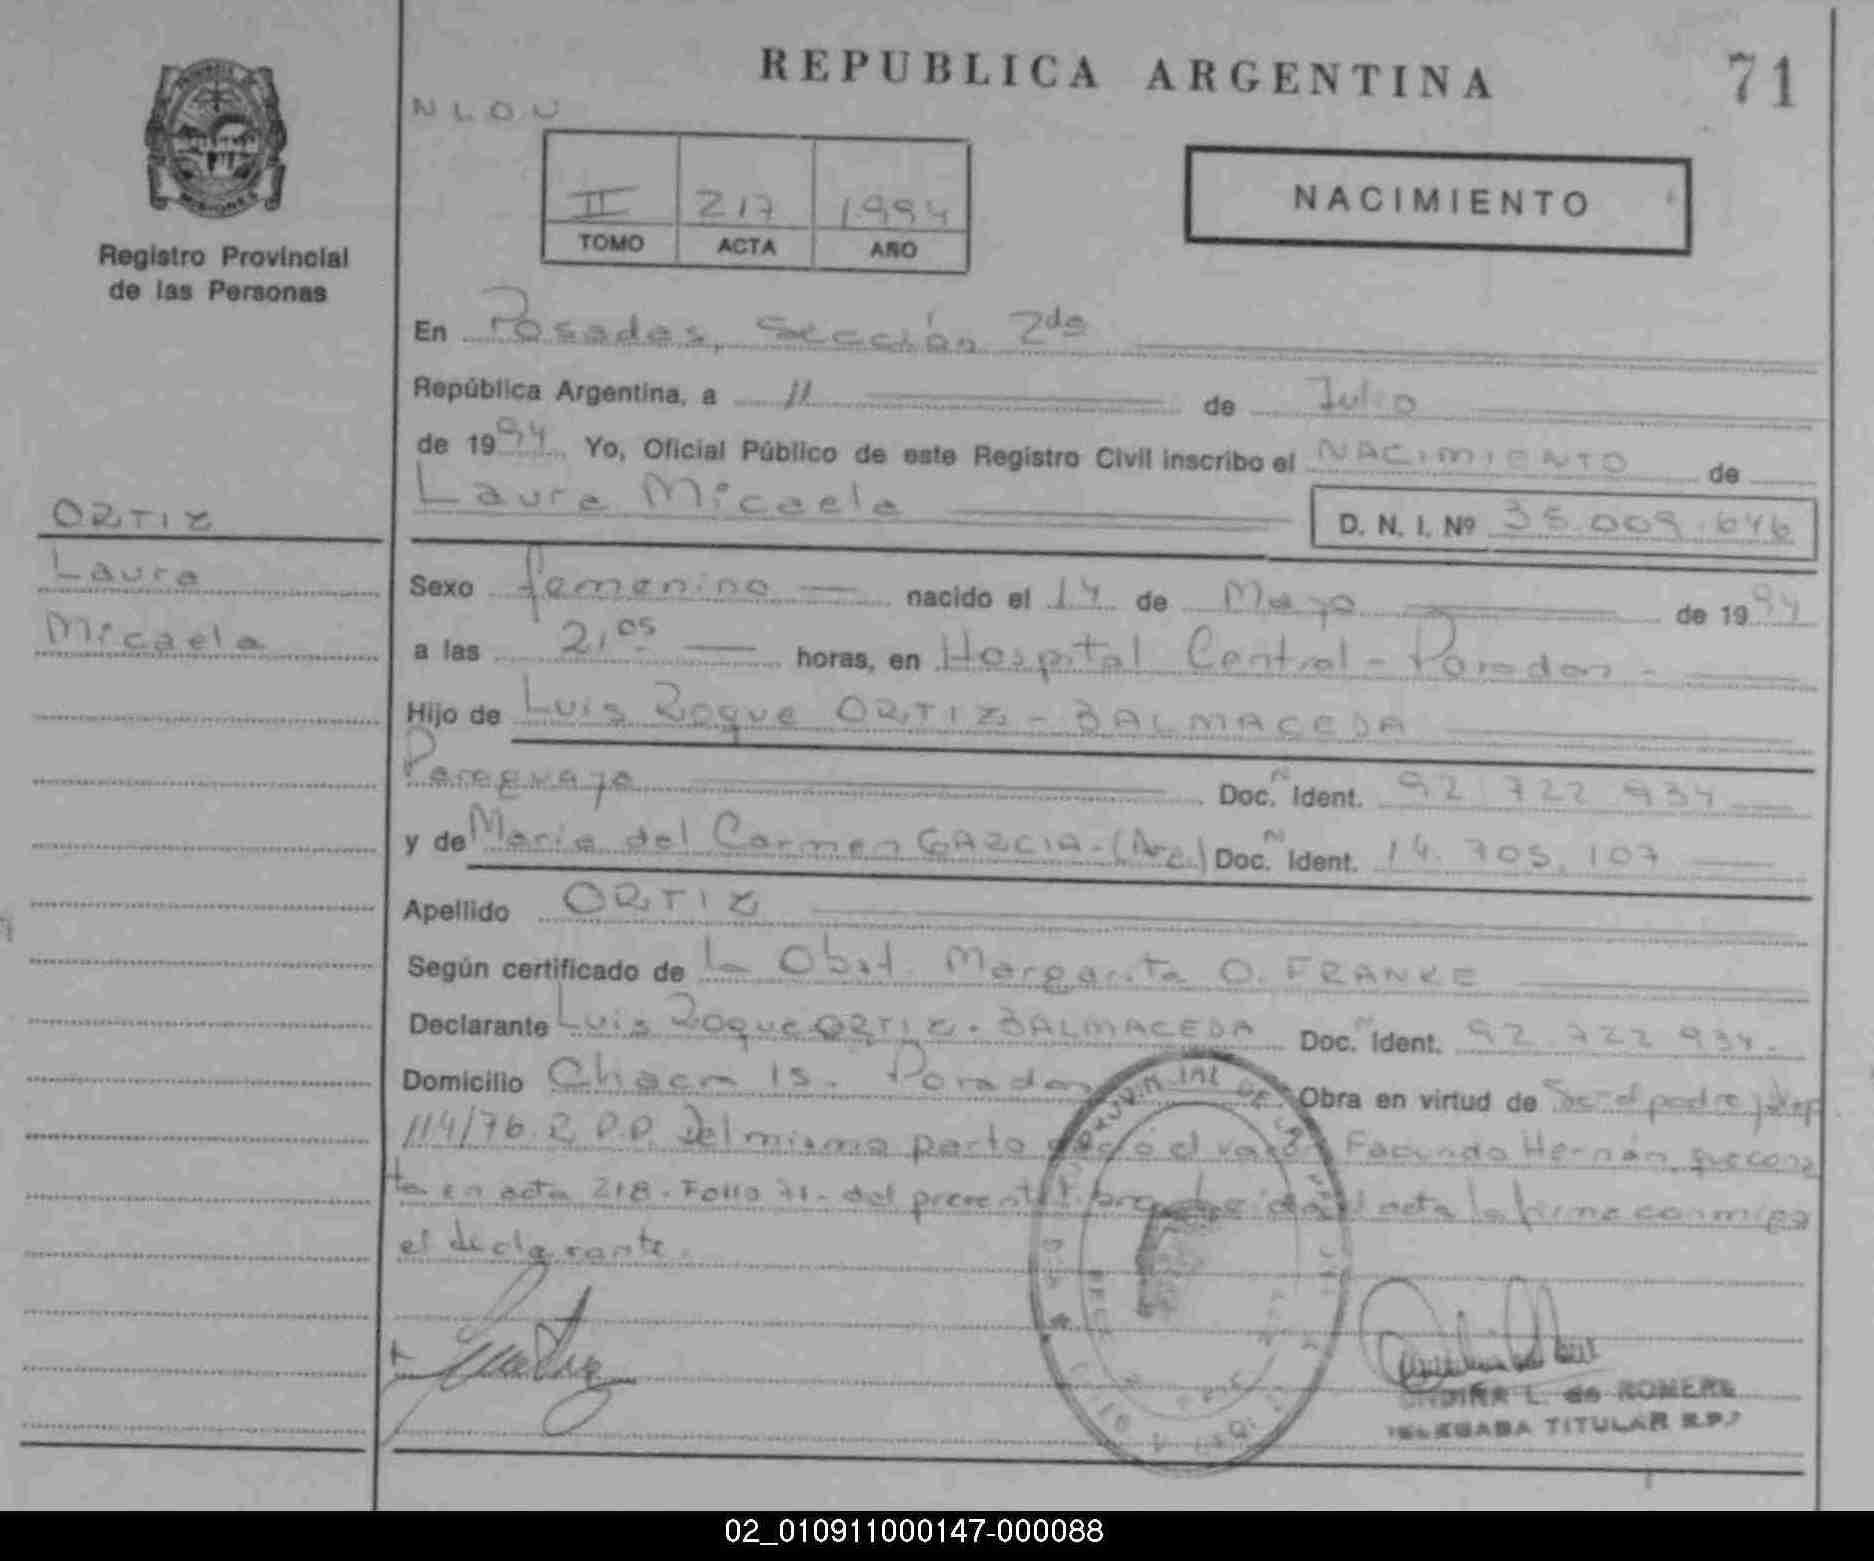 REPUBLICA ARGENTINA
71
Registro Provincial
de las Personas
II 217 1994
TOMO ACTA AÑO
NACIMIENTO
En Posadas, Sección 2da
República Argentina, a 11 de Julio
de 1994 Yo, Oficial Público de este Registro Civil inscribo el NACIMIENTO de
Laura Micaela D. N. I. Nº 35.009.646
ORTIZ
Laura
Micaela
Sexo femenino nacido el 14 de Mayo de 1994
a las 21,05 horas, en Hospital Central - Posadas -
Hijo de Luis Roque ORTIZ - BALMACEDA
Paraguayo Doc. Ident. 92.722.934
y de María del Carmen GARCIA - (Arg.) Doc. Ident. 14.705.107
Apellido ORTIZ
Según certificado de la Obst. Margarita O. FRANKE
Declarante Luis Roque ORTIZ - BALMACEDA Doc. Ident. 92.722.934.
Domicilio Chacra 15. Posadas Obra en virtud de Ser el padre
114/76. R.P.P. Del mismo parto nació el varón Facundo Hernán, que cons
ta en acta 218 - Folio 71 - del presente acta la firma conmigo
el declarante.
L. de ROMERO
DELEGADA TITULAR R.P.
02_010911000147-000088